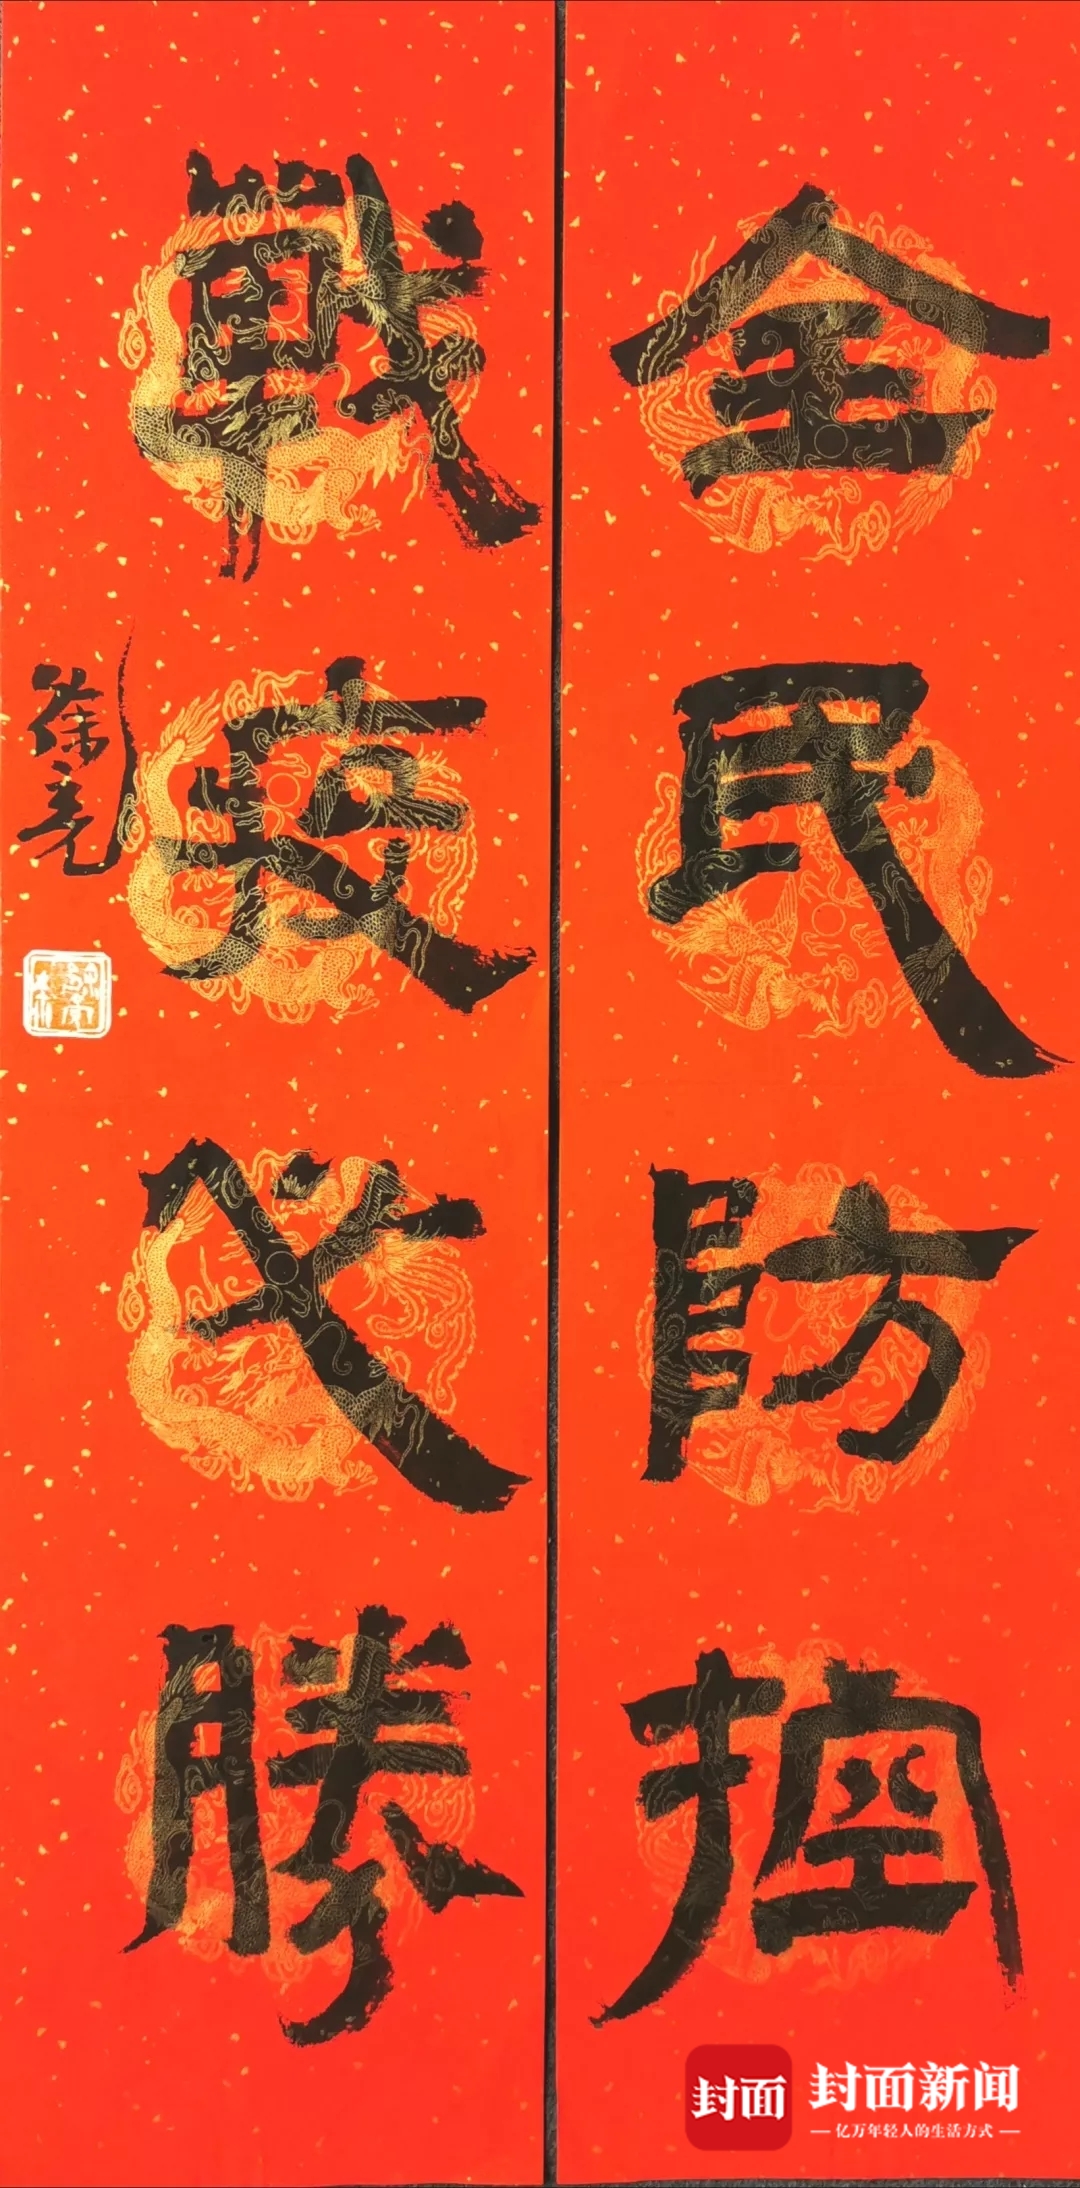 全民防控
戰疫必勝
徐亮
封面
封面新闻
亿万年轻人的生活方式